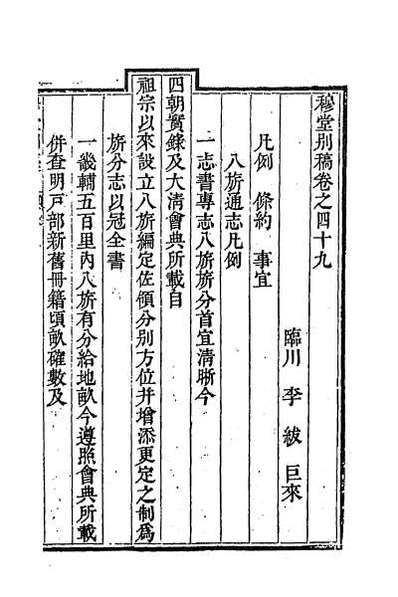 穆堂別稿卷之四十九
臨川 李 紱 巨來
凡例 條約 事宜
八旂通志凡例
一志書專志八旂旂分首宜清晰今
四朝實錄及大清會典所載自
祖宗以來設立八旂編定佐領分別方位并增添更定之制爲
旂分志以冠全書
一畿輔五百里內八旂有分給地畝今遵照會典所載
併查明戸部新舊冊籍頃畝確數及